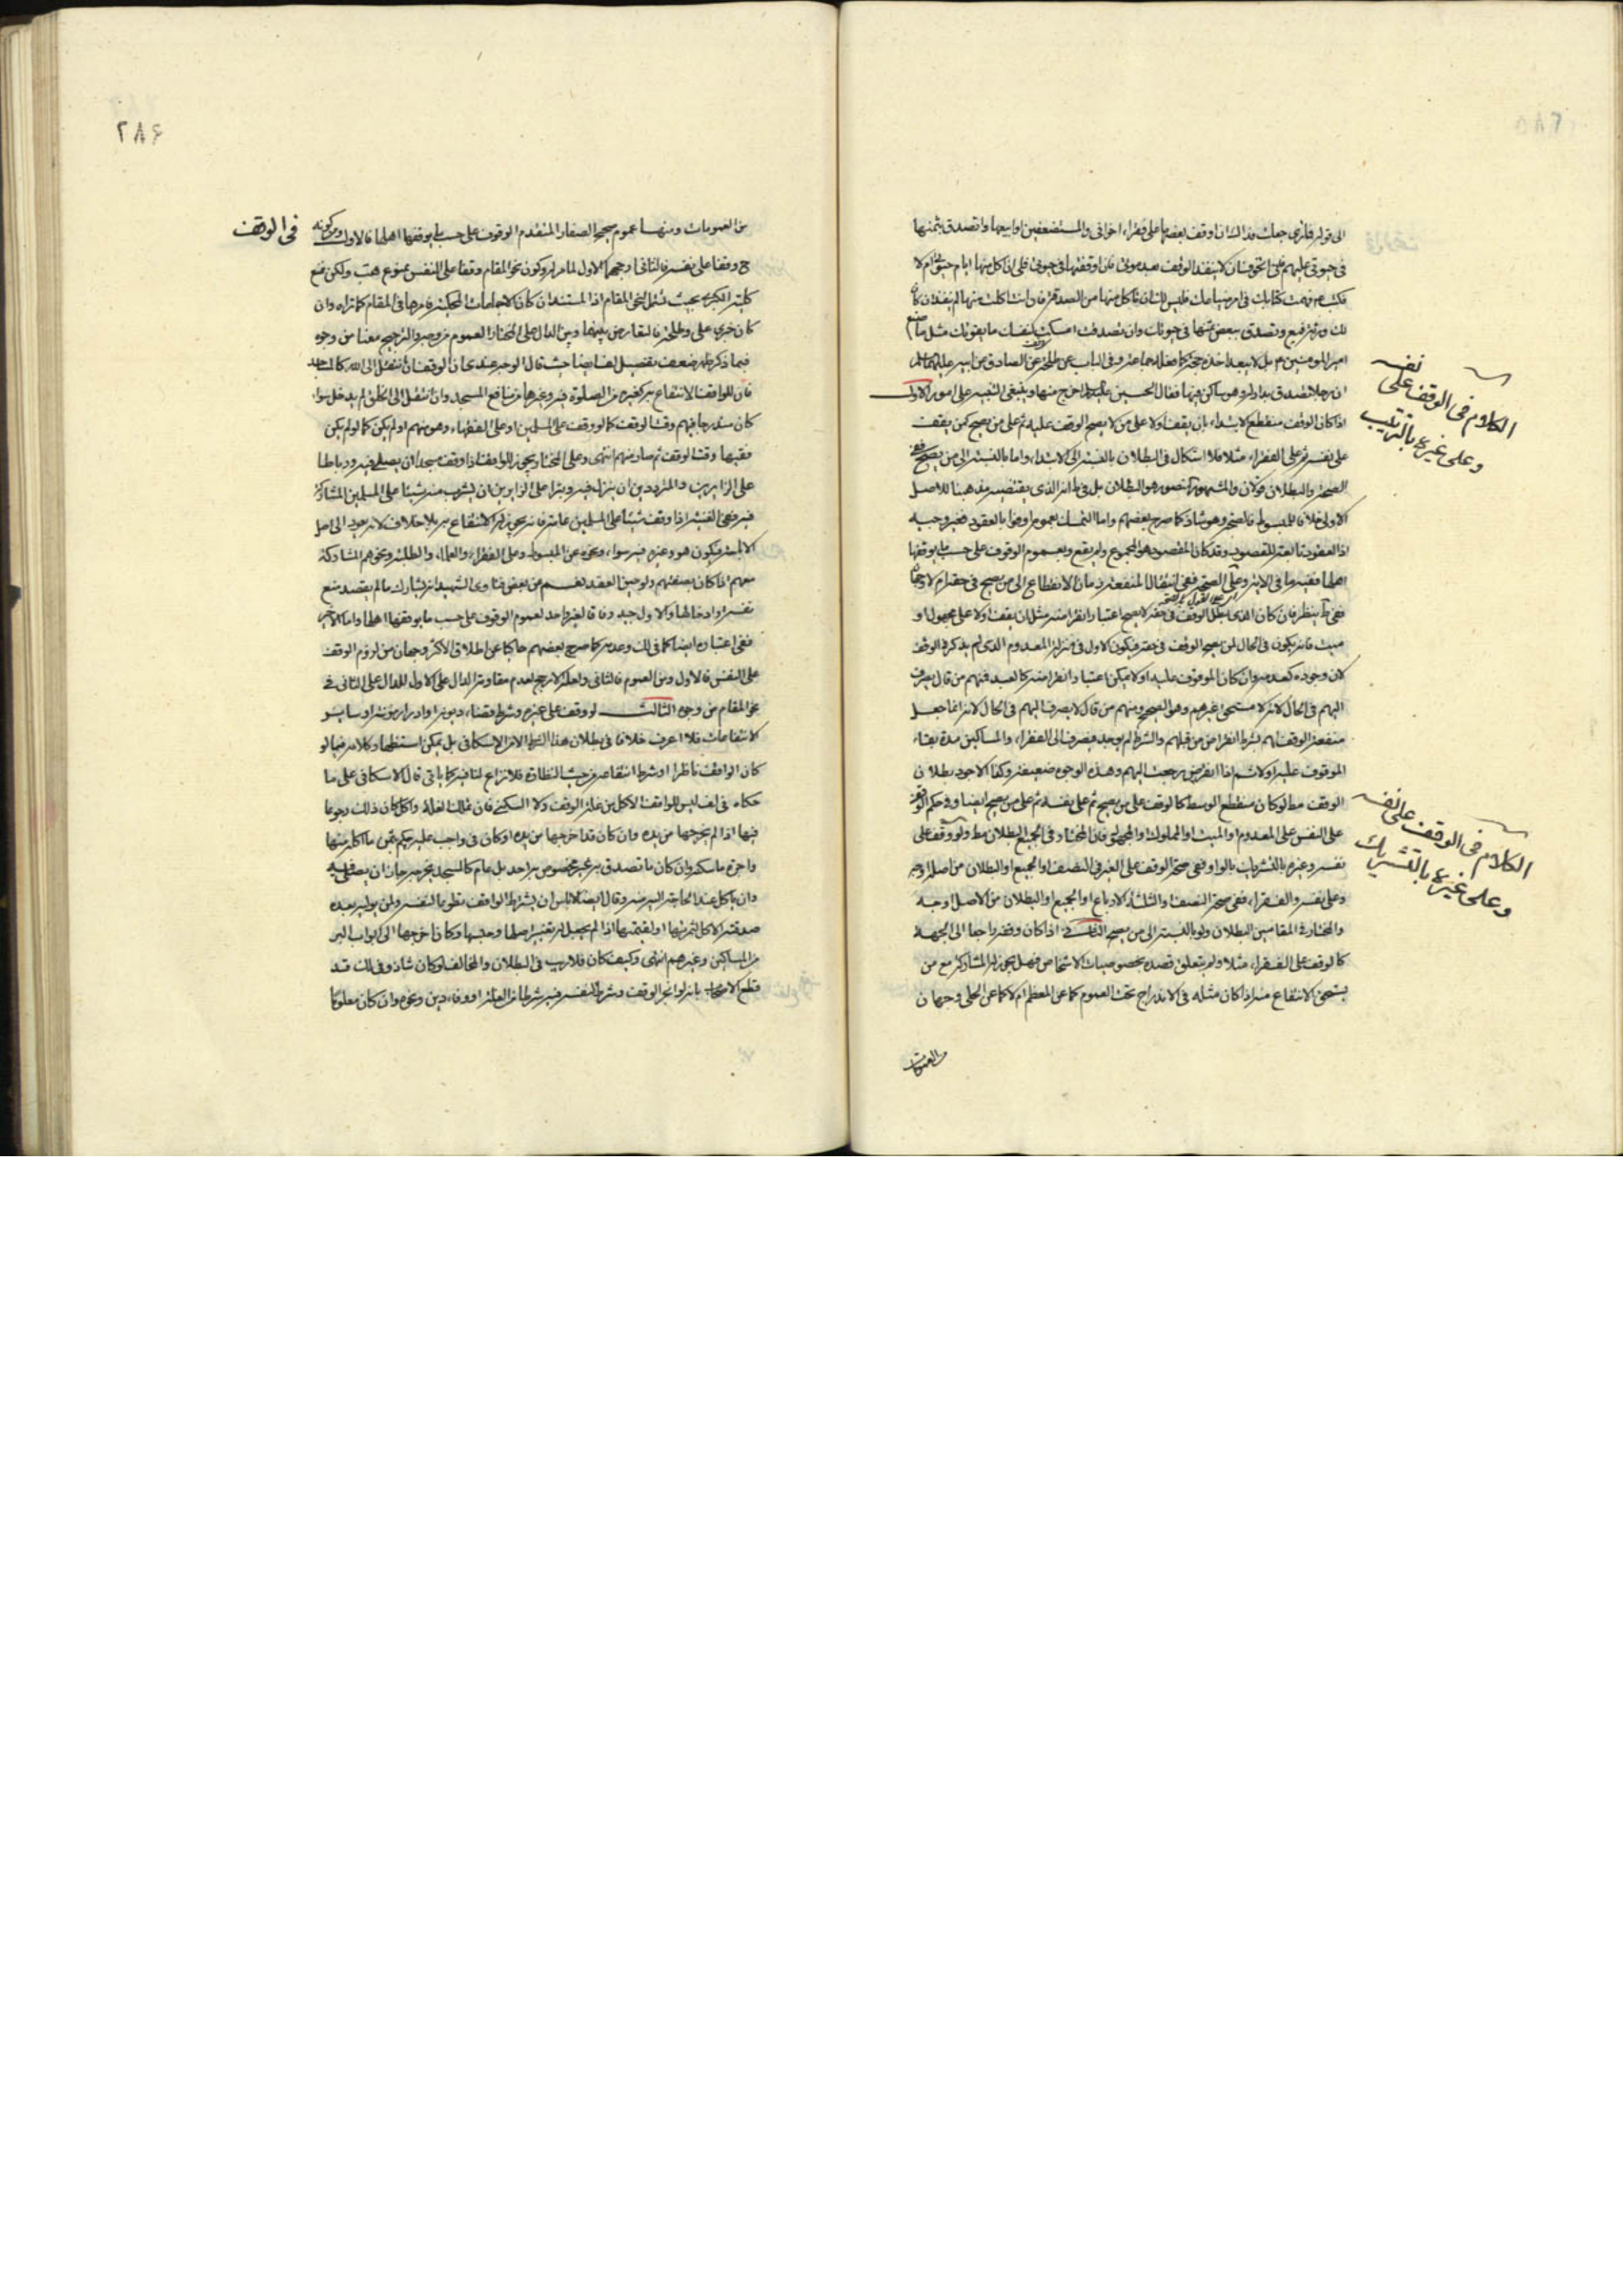 الى قوله فلنرى جعلت فداك ان اوقف بعضها على فقراء اخوانى والمستضعفين او ابيعها واتصدق بثمنها
فى حيوتى عليهم فانى اتخوف ان لا ينفذ الوقف بعد موتى فان اوقفتها فى حيوتى فلى ان اكل منها ايام حيوتى ام لا
فكتب فهمت كتابك فى امر ضياعك فليس لك ان تاكل منها من الصدقة فان انت اكلت منها لم ينفذ ان كان
لك ورثة فبع وتصدق ببعض ثمنها فى حيوتك وان تصدقت امسكت لنفسك ما يقوتك مثل ما صنع
امير المؤمنين
ان رجلا تصدق بدار له وهو ساكن فيها فقال الحسين اخرج منها وينبغى التنبيه على امور الاول
اذا كان الوقف منقطع الابتداء بان يقف اولا على من لا يصح الوقف عليه ثم على من يصح كمن يقف
على نفسه ثم على الفقراء مثلا فلا اشكال فى البطلان بالنسبة الى الابتداء واما بالنسبة الى من يصح
الصحة والبطلان قولان والمشهور هو البطلان بل الذى يقتضيه مذهبنا للاصل
وهو شاذ كما صرح بعضهم واما التمسك بعموم اوفوا بالعقود
اذ العقود تابعة للقصود وقد كان المقصود هو المجموع ولم يقع وبعموم الوقوف على حسب ما يوقفها
اهلها ففيه وعلى الصحة ففى انتقال المنفعة زمان الانقطاع الى من يصح فى حقه ام لا
ينظر فان كان الذى بطل الوقف فى حقه لا يصح اعتبار انقراضه مثل ان يقف اولا على مجهول او
ميت فانه يكون فى الحال لمن يصح الوقف فى حقه فيكون الاول بمنزلة المعدوم الذى لم يذكره الوقف
لان وجوده كعدمه وان كان الموقوف عليه اولا يمكن اعتبار انقراضه كالعبد فمنهم من قال يصرف
اليهم فى الحال لانه لا مستحق غيرهم وهو الصحيح ومنهم من قال لا يصرف اليهم فى الحال لانه انما جعل
منفعة الوقف لهم بشرط انقراض من قبلهم والشرط لم يوجد فيصرف الى الفقراء والمساكين مدة بقاء
الموقوف عليه اولا ثم اذا انقرض رجعت اليهم وهذه الوجوه ضعيفة وكذا الاجود بطلان
الوقف لو كان منقطع الوسط كما لو وقف على من يصح ثم على نفسه ثم على من يصح ايضا وفى حكم الوقف
على النفس على المعدوم او الميت او المملوك او المجهول فان المختار فى الجميع البطلان ولو وقف على
نفسه وغيره بالتشريك بالواو ففى صحة الوقف على الغير فى النصف او الجميع او البطلان من اصله اوجه
وعلى نفسه والفقراء ففى صحة النصف او الثلثة الارباع او الجميع او البطلان من الاصل اوجه
والمختار فى المقامين البطلان ولو بالنسبة الى من يصح الثانى اذا كان وقفه راجعا الى الجهة
كالوقف على الفقراء مثلا ولم يتعلق قصده بخصوصيات الاشخاص فهل يجوز له المشاركة مع من
يستحق الانتفاع منه اذا كان مثله فى الاندراج تحت العموم كما عن المعظم ام لا كما عن الحلى وجهان
من العمومات
الكلام فى الوقف على نفسه
وعلى غيره بالترتيب
الكلام فى الوقف على نفسه
وعلى غيره بالتشريك
٢٨۶
فى الوقف
من العمومات ومنها عموم صحيح الصفار المتقدم الوقوف على حسب ما يوقفها اهلها فالاول
وقفا على نفسه فالثانى ارجحهما الاول لما مر وكون نحو المقام وقفا على النفس ممنوع ولكن منع
كلية الكبرى بحيث تشمل نحو المقام اذ المستند ان كان الاجماعات المحكية فامرها فى المقام كما تراه وان
كان خبرى على وطلحة فالتعارض بينهما وبين الدال على المختار العموم من وجه والترجيح معنا من وجوه
فيما ذكر ظهر ضعف تفصيل ايضا حيث قال الوجه عندى ان الوقف ان انتقل الى الله كالمساجد
فان للواقف الانتفاع به كغيره من الصلوة فيه وغيرها من منافع المسجد وان انتقل الى الخلق لم يدخل سواء
كان مندرجا فيهم وقت الوقف كما لو وقف على المسلمين او على الفقهاء وهو منهم او لم يكن كما لو لم يكن
فقيها وقت الوقف ثم صار منهم انتهى وعلى المختار يجوز للواقف اذا وقف مسجدا ان يصلى فيه ورباطا
على الزايرين والمترددين ان ينزل فيه وبئرا على الزايرين ان يشرب منه
اذا وقف شيئا على المسلمين عامة فانه يجوز له الانتفاع به بلا خلاف لانه يعود الى اصل
الاباحة فيكون هو وغيره فيه سواء ونحوه عن المبسوط وعلى الفقراء والعلماء والطلبة ونحوهم المشاركة
معهم اذا كان بصفتهم ولو حين العقد نعم عن بعض فتاوى الشهيد انه يشارك ما لم يقصد منع
نفسه او ادخالها والاول جيد وفاقا لغير واحد لعموم الوقوف على حسب ما يوقفها اهلها واما الاخير
ففى اعتباره ايضا كما فى ذلك وعدمه كما صرح بعضهم حاكيا عن اطلاق الاكثر وجهان من لزوم الوقف
على النفس فالاول ومن العموم فالثانى ولعله الارجح لعدم مقاومة الدال على الاول للدال على الثانى فى
نحو المقام من وجوه الثالث لو وقف على غيره وشرط قضاء ديونه او ادرار مؤنته او ساير
الانتفاعات فلا اعرف خلافا فى بطلان هذا الشرط الا من الاسكافى بل يمكن استظهار
كان الواقف ناظرا او شرط انتفاعه من حيث النظارة فلا نزاع لنا فيه كما ياتى قال الاسكافى على ما
حكاه فى لف ليس للواقف الاكل من غلة الوقف ولا السكنى فان تملك الغلة واكل كان ذلك رجوعا
فيها اذا لم يخرجها من يده وان كان قد اخرجها من يده او كان فى واجب عليه حكم بثمن ما اكله منها
واجرة ما سكنه وان كان ما تصدق به غير مخصوص به احد بل عام كالمسجد وغيره جاز ان يصلى فيه
وان ياكل عند الحاجة اليه منه وقال ايضا لا باس ان يشترط الواقف تطوعا لنفسه ولمن يوليه بعده
صدقته الاكل لثمرتها او لقيمتها اذا لم يجعل له تغيير اصلها وحبسها وكان اخرجها الى ابواب البر
من المساكين وغيرهم انتهى وكيف كان فلا ريب فى البطلان والمخالف لو كان شاذ وفى لك قد
قطع الاصحاب بانه لو انجز الوقف وشرط لنفسه فيه شرطا من الغلة او وفاء دين ونحوه وان كان معلوما